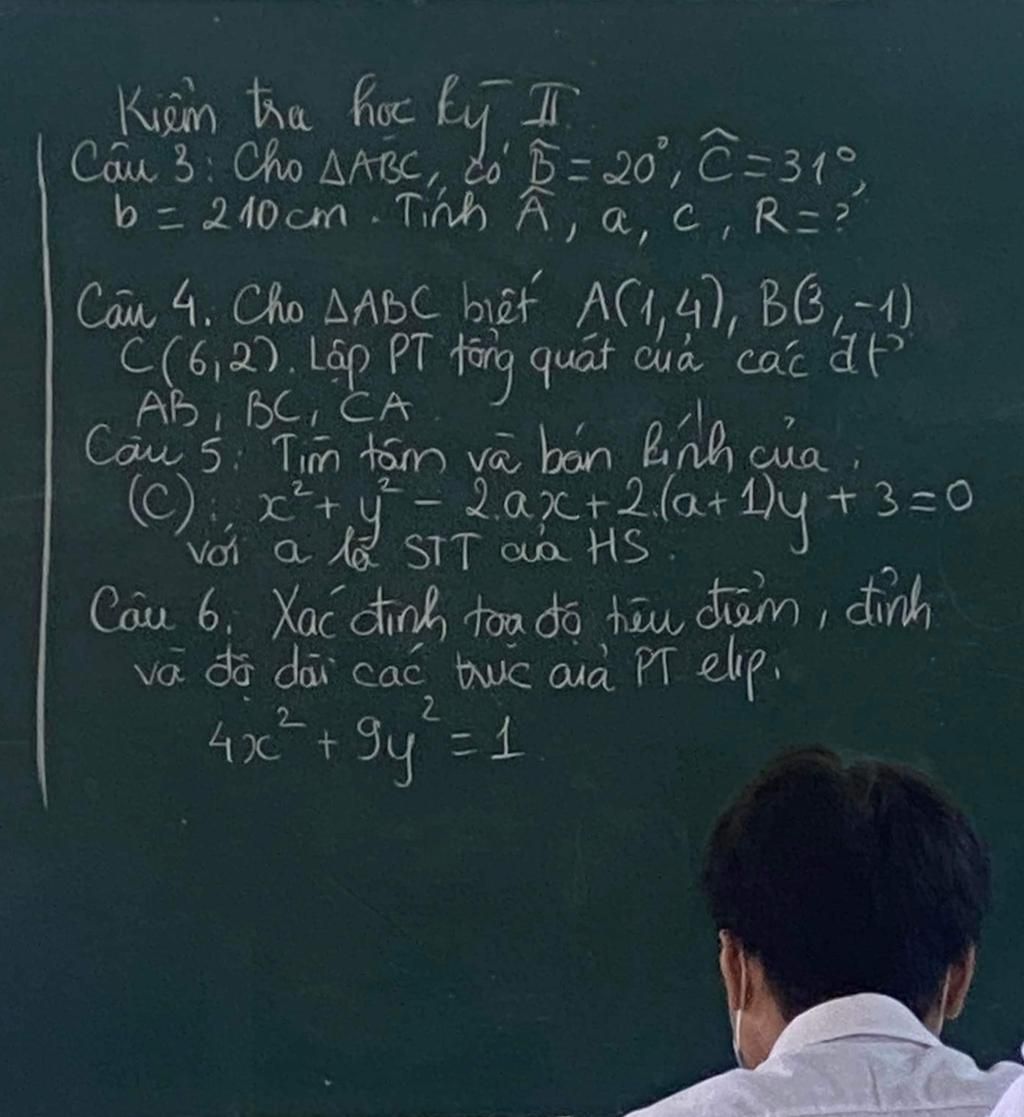 Kiểm tra học kỳ II
Câu 3: Cho ΔABC, có B̂ = 20°, Ĉ = 31°,
b = 210cm. Tính Â, a, c, R = ?
Câu 4. Cho ΔABC biết A(1,4), B(3,-1)
C(6,2). Lập PT tổng quát của các đt
AB, BC, CA
Câu 5: Tìm tâm và bán kính của:
(C): x² + y² - 2.ax + 2.(a+1)y + 3 = 0
với a là STT của HS.
Câu 6. Xác định toạ độ tiêu điểm, đỉnh
và độ dài các trục của PT elip.
4x² + 9y² = 1